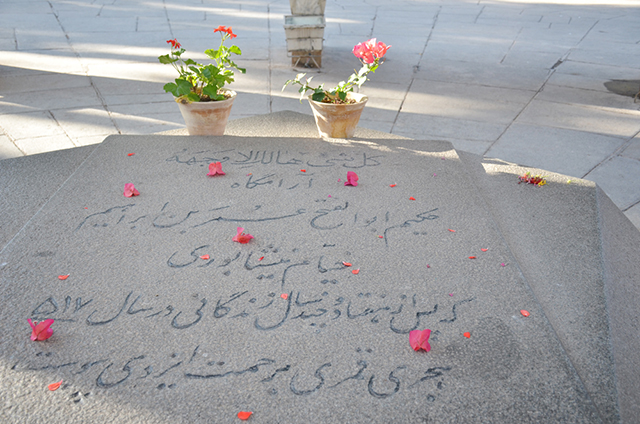 کل شیئ هالک الا وجهه
آرامگاه
حکیم ابوالفتح عمر بن ابراهیم
خیام نیشابوری
که پس از هفتاد و چند سال زندگانی در سال ۵۱۷
هجری قمری برحمت ایزدی پیوست